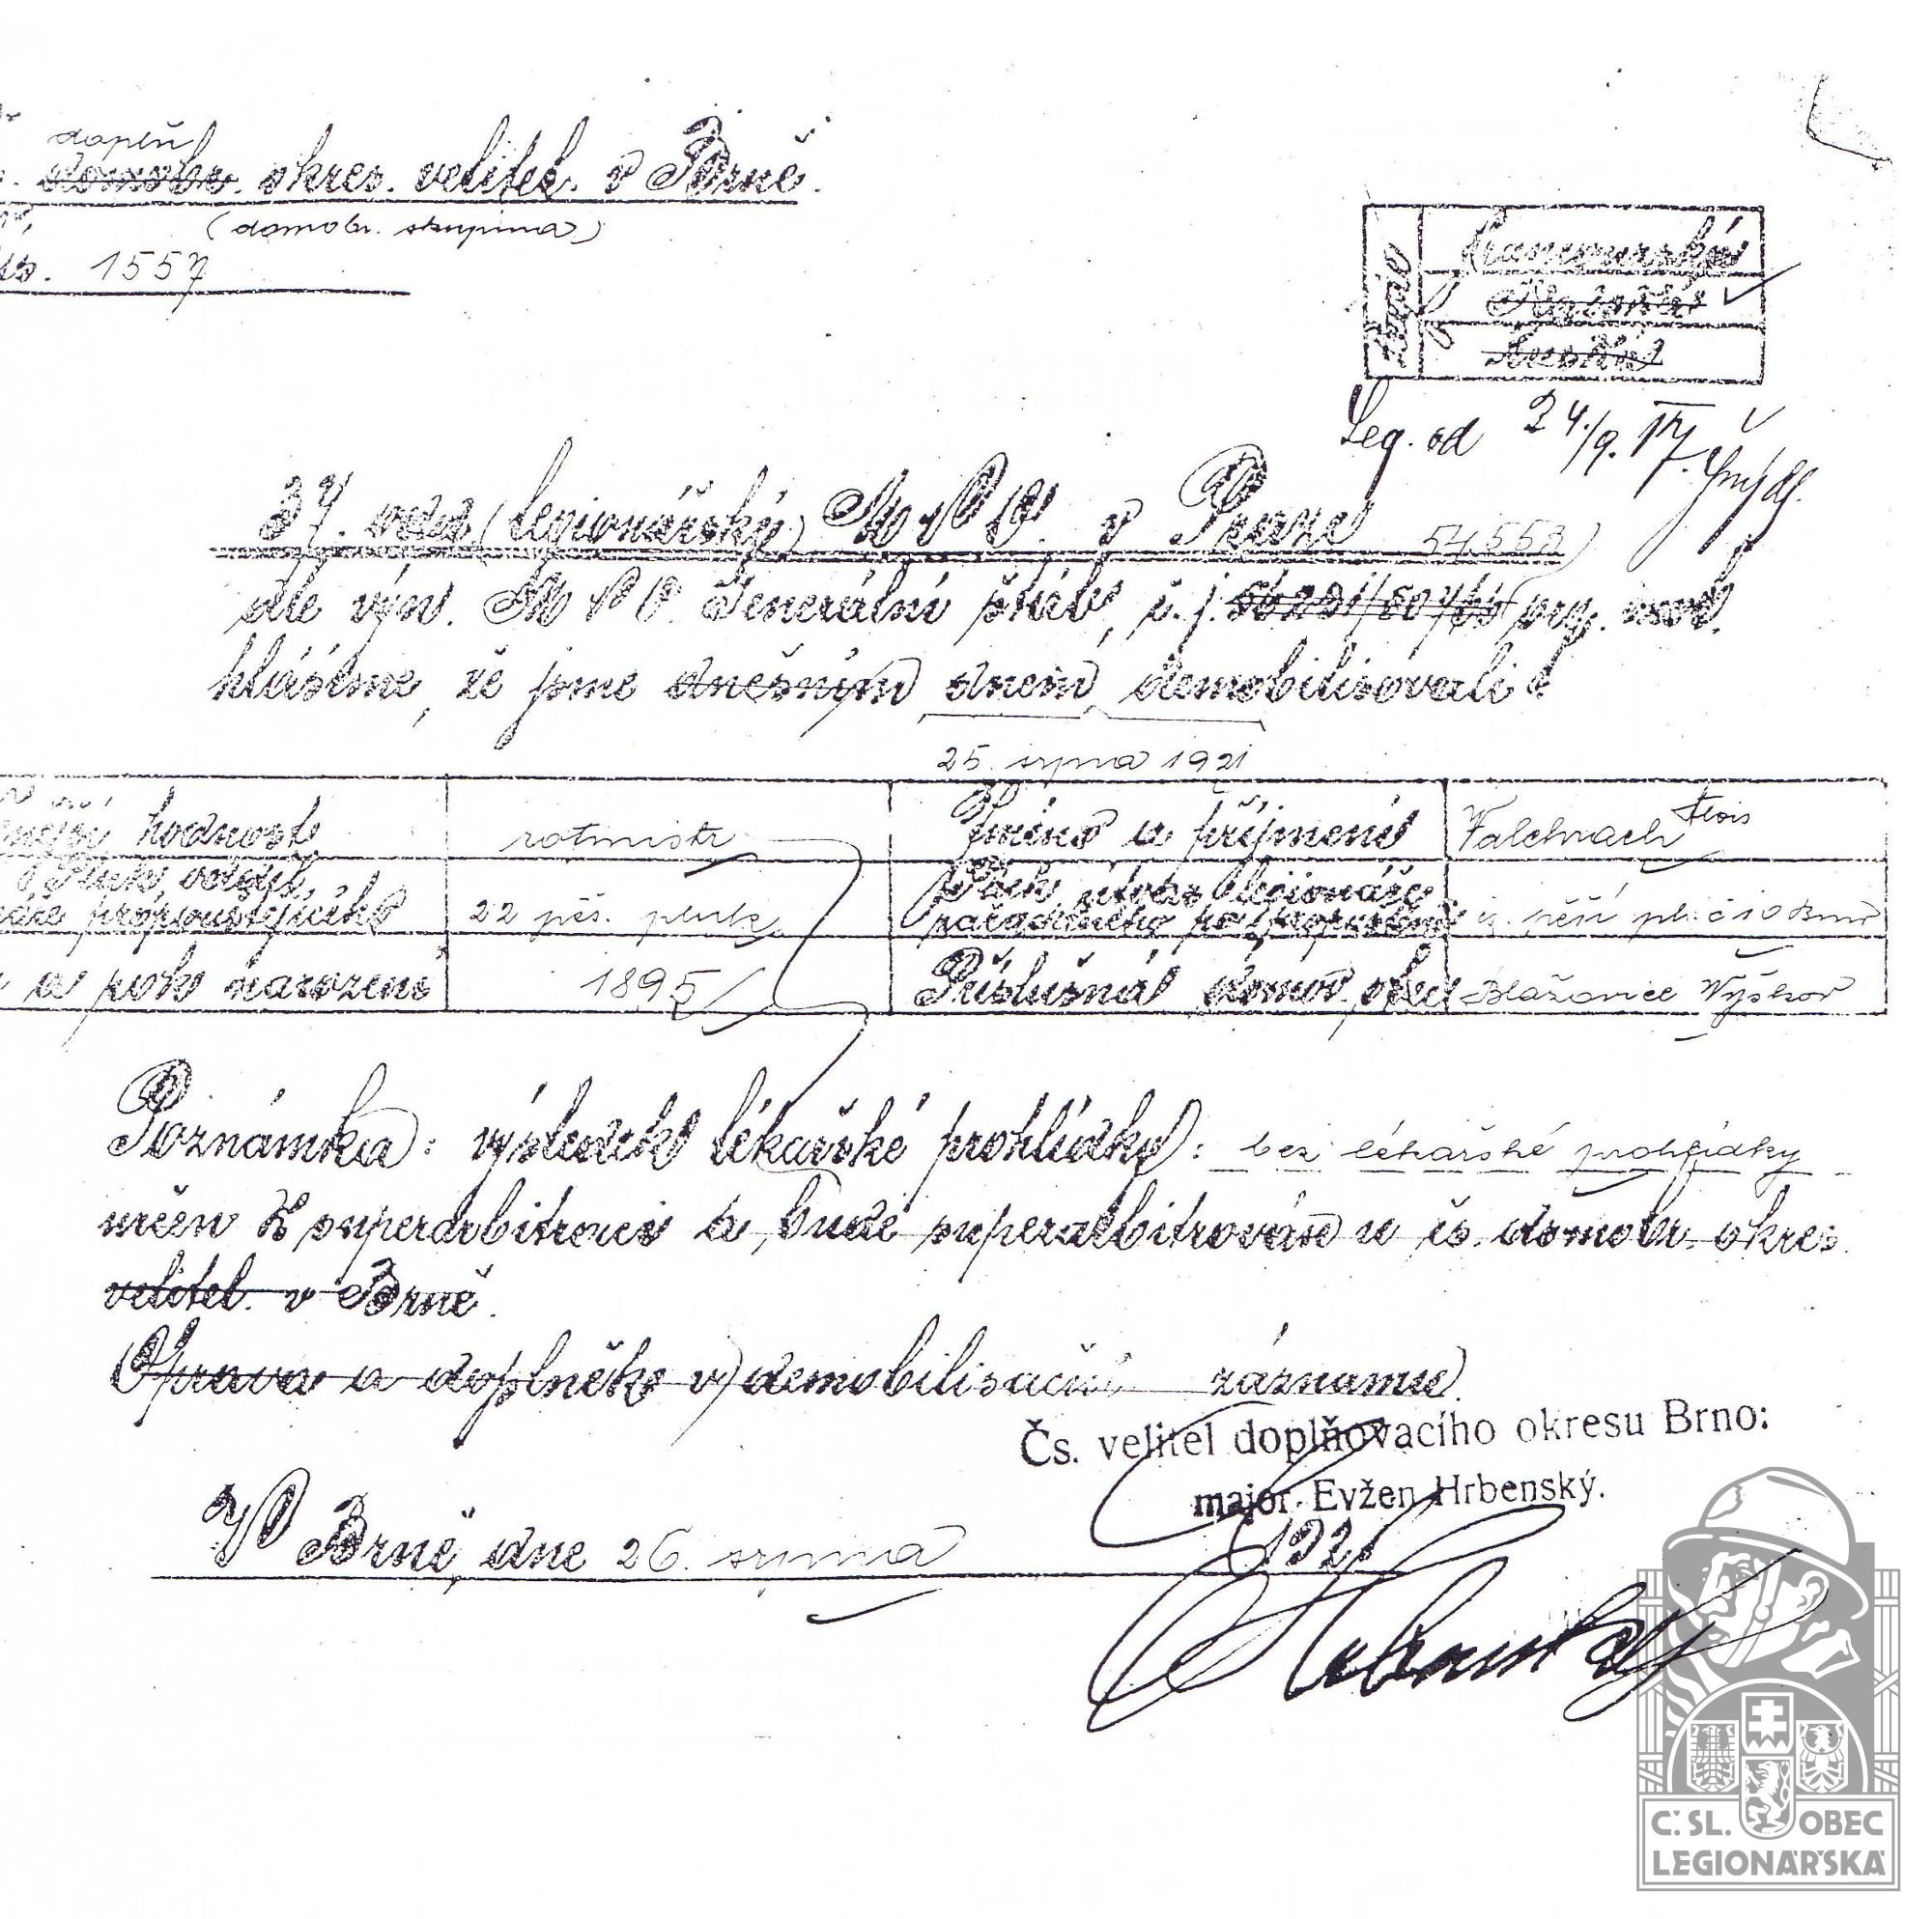 doplň
domobr. okres. velitel. v Brně.
(domobr. skupina)
1557
Francouzská
Ruská
Italská
Leg. od 24./9. 17.
37. odd. (legionářský) M N O. v Praze
54.557
dle výn. M N O. Generální štáb, č. j. pry. osob.
hlásíme, že jsme dnešním dnem demobilisovali
25. srpna 1921
hodnost
rotmistr
Jméno a příjmení
Falchnach Alois
Pluk,
propouštějícího
22 pěš. pluk
Pluk, útvar legionáře
po propuštění
pěší pl. č 10 Brno
a rok narození
1895
Příslušná domov. obec
Blažovice Vyškov
Poznámka: výsledek lékařské prohlídky: bez lékařské prohlídky
určen k superarbitraci a bude superarbitrován u čs. domobr. okres.
velitel. v Brně.
Oprava a doplněk v demobilisační záznamu
Čs. velitel doplňovacího okresu Brno:
major Evžen Hrbenský.
V Brně, dne 26. srpna 1921
Č. SL. OBEC
LEGIONÁŘSKÁ